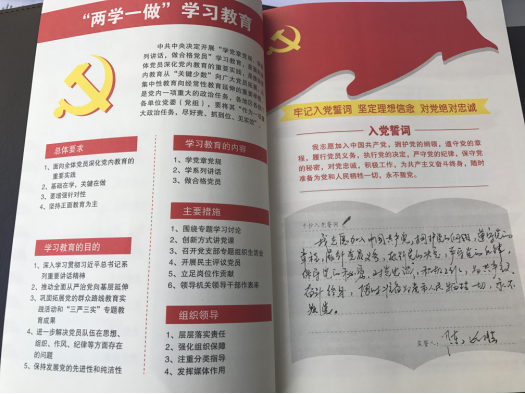 “两学一做”学习教育
中共中央决定开展“学党章党规、学系
列讲话，做合格党员”学习教育，是面向全
体党员深化党内教育的重要实践，是推动党
内教育从“关键少数”向广大党员拓展、从
集中性教育向经常性教育延伸的重要举措，
是党内一项重大的政治任务，各地区各部门
各单位党委（党组），要将其“作为一项重
大政治任务，尽好责、抓到位、见实效”
总体要求
1、面向全体党员深化党内教育的
重要实践
2、基础在学，关键在做
3、要增强针对性
4、坚持正面教育为主
学习教育的目的
1、深入学习贯彻习近平总书记系
列重要讲话精神
2、推动全面从严治党向基层延伸
3、巩固拓展党的群众路线教育实
践活动和“三严三实”专题教
育成果
4、进一步解决党员队伍在思想、
组织、作风、纪律等方面存在
的问题
5、保持发展党的先进性和纯洁性
学习教育的内容
1、学党章党规
2、学系列讲话
3、做合格党员
主要措施
1、围绕专题学习讨论
2、创新方式讲党课
3、召开党支部专题组织生活会
4、开展民主评议党员
5、立足岗位作贡献
6、领导机关领导干部作表率
组织领导
1、层层落实责任
2、强化组织保障
3、注重分类指导
4、发挥媒体作用
牢记入党誓词 坚定理想信念 对党绝对忠诚
入党誓词
我志愿加入中国共产党，拥护党的纲领，遵守党的章
程，履行党员义务，执行党的决定，严守党的纪律，保守党
的秘密，对党忠诚，积极工作，为共产主义奋斗终身，随时
准备为党和人民牺牲一切，永不叛党。
手抄入党誓词
我志愿加入中国共产党，拥护党的纲领，遵守党的
章程，履行党员义务，执行党的决定，严守党的纪律，
保守党的秘密，对党忠诚，积极工作，为共产主义
奋斗终身，随时准备为党和人民牺牲一切，永不
叛党。
宣誓人：